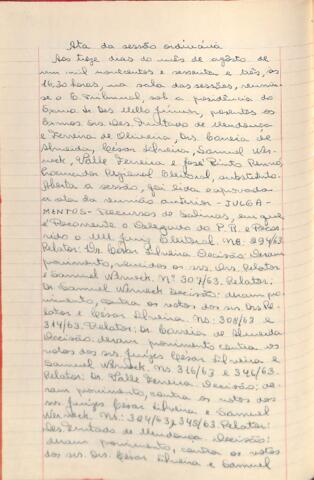 Ata da sessão ordinária
Aos treze dias do mês de agosto de
um mil novecentos e sessenta e três, às
16,30 horas, na sala das sessões, reuniu-
se o E. Tribunal, sob a presidência do
Exmo Sr. Des. Mello Júnior, presentes os
Exmos Srs. Des. Furtado de Mendonça
e Ferreira de Oliveira, Drs. Correia de
Almeida, César Silveira, Samuel Wer-
neck, Valle Ferreira e José Pinto Renó,
Procurador Regional Eleitoral, substituto.
Aberta a sessão, foi lida e aprovada
a ata da reunião anterior. - JULGA-
MENTOS - Recursos de Salinas, em que
é Recorrente o Delegado do P.R. e Recor-
rido o MM. Juiz Eleitoral. Nº 294/63.
Relator: Dr. César Silveira. Decisão: Deram
provimento, vencidos os srs. Drs. Relator
e Samuel Werneck. Nº 307/63. Relator:
Dr. Samuel Werneck. Decisão: deram pro-
vimento, contra os votos dos srs. Drs. Re-
lator e César Silveira. Ns: 308/63 e
314/63. Relator: Dr. Correia de Almeida
Decisão: deram provimento contra os
votos dos srs. Juízes César Silveira e
Samuel Werneck. Ns. 316/63 e 346/63.
Relator: Dr. Valle Ferreira. Decisão: de-
ram provimento, contra os votos dos
srs. Juízes César Silveira e Samuel
Werneck. Ns: 324/63 e 345/63. Relator:
Des. Furtado de Mendonça. Decisão:
deram provimento, contra os votos
dos srs. Drs. César Silveira e Samuel